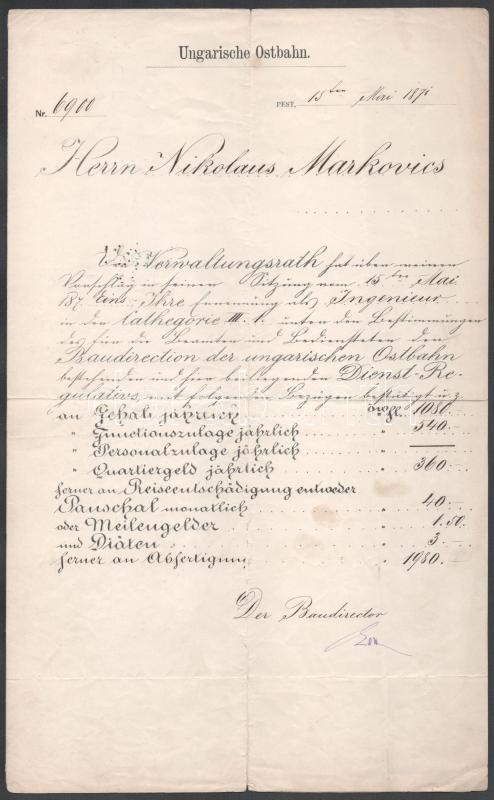 Ungarische Ostbahn.
Nr. 6900
PEST, 15ten Mai 1871
Herrn Nikolaus Markovics
Der Verwaltungsrath hat über meinen
Vorschlag in seiner Sitzung vom 15ten Mai
187 Eins Ihre Ernennung als Ingenieur
in der Cathegorie III. 1. unter den Bestimmungen
des für die Beamten und Bediensteten der
Baudirection der ungarischen Ostbahn
bestehenden und hier beiliegenden Dienst-Re-
gulativs mit folgenden Bezügen bestätigt u. z.
an Gehalt jährlich öW fl. 1080.-
" Functionszulage jährlich " 540.-
" Personalzulage jährlich "
" Quartiergeld jährlich " 360.-
ferner an Reiseentschädigung entweder
Pauschal monatlich " 40.-
oder Meilengelder " 1.50.
und Diäten " 3.-
ferner an Abfertigung " 1980.-
Der Baudirector